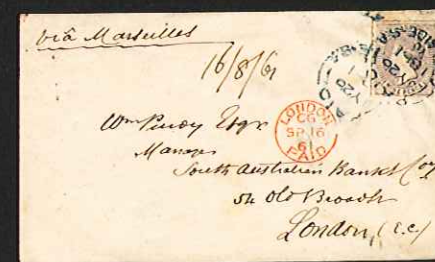 via Marseilles
16/8/61
LONDON
C6
SP 16
61
PAID
Wm Purdy Esqr
Manager
South Australian Banks Coy
54 Old Broad
London, (E.C.)